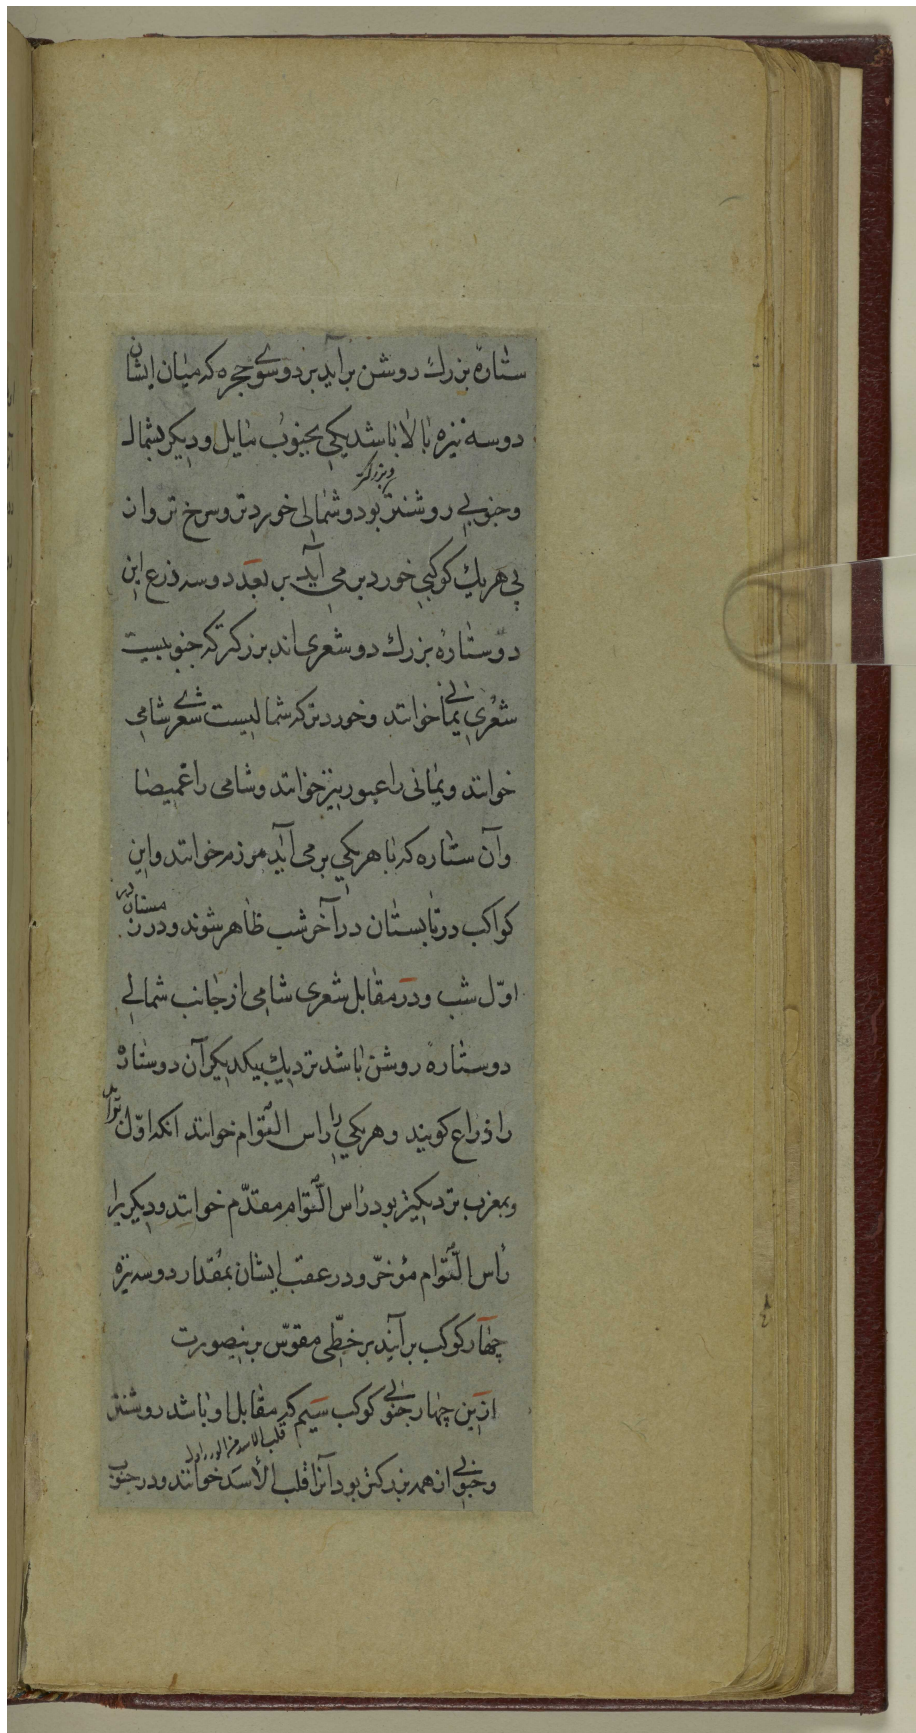 ستارهٔ بزرك روشن برآید بر دو سوی مجره که میان ایشان
دو سه نیزه بالا باشد یکی بجنوب مایل و دیکر بشمال
و بزرکتر
و جنوبی روشنتر بود و شمالی خوردتر و سرخ تر و از
پی هریك کوکبی خورد بر می آید بر بعد دو سه ذرع این
دو ستارهٔ بزرك دو شعری اند بزرکتر که جنوبیست
شعری یمانی خوانند و خوردتر که شمالیست شعری شامی
خوانند و یمانی را عبور نیز خوانند و شامی را غمیصا
و آن ستاره که با هر یکی بر می آید مرزم خوانند و این
کواکب در تابستان در آخر شب ظاهر شوند و در زمستان در
اوّل شب و در مقابل شعری شامی از جانب شمالی
دو ستارهٔ روشن باشد نزدیك بیکدیکر آن دو ستاره
را ذراع کویند و هر یکی را راس التوام خوانند انکه اوّل برآید
و بمغرب نزدیکتر بود راس التّوام مقدّم خوانند و دیکر را
رأس التّوام مؤخّر و در عقب ایشان بمقدار دو سه نیزه
چهار کوکب برآیند بر خطّی مقوّس برینصورت
ازین چهار جنوبی کوکب سیم که مقابل او باشد روشنتر
قلب الاسد من القدر الاول
و جنوبی از همه بزرکتر بود آنرا قلب الأسد خوانند و در جنوب